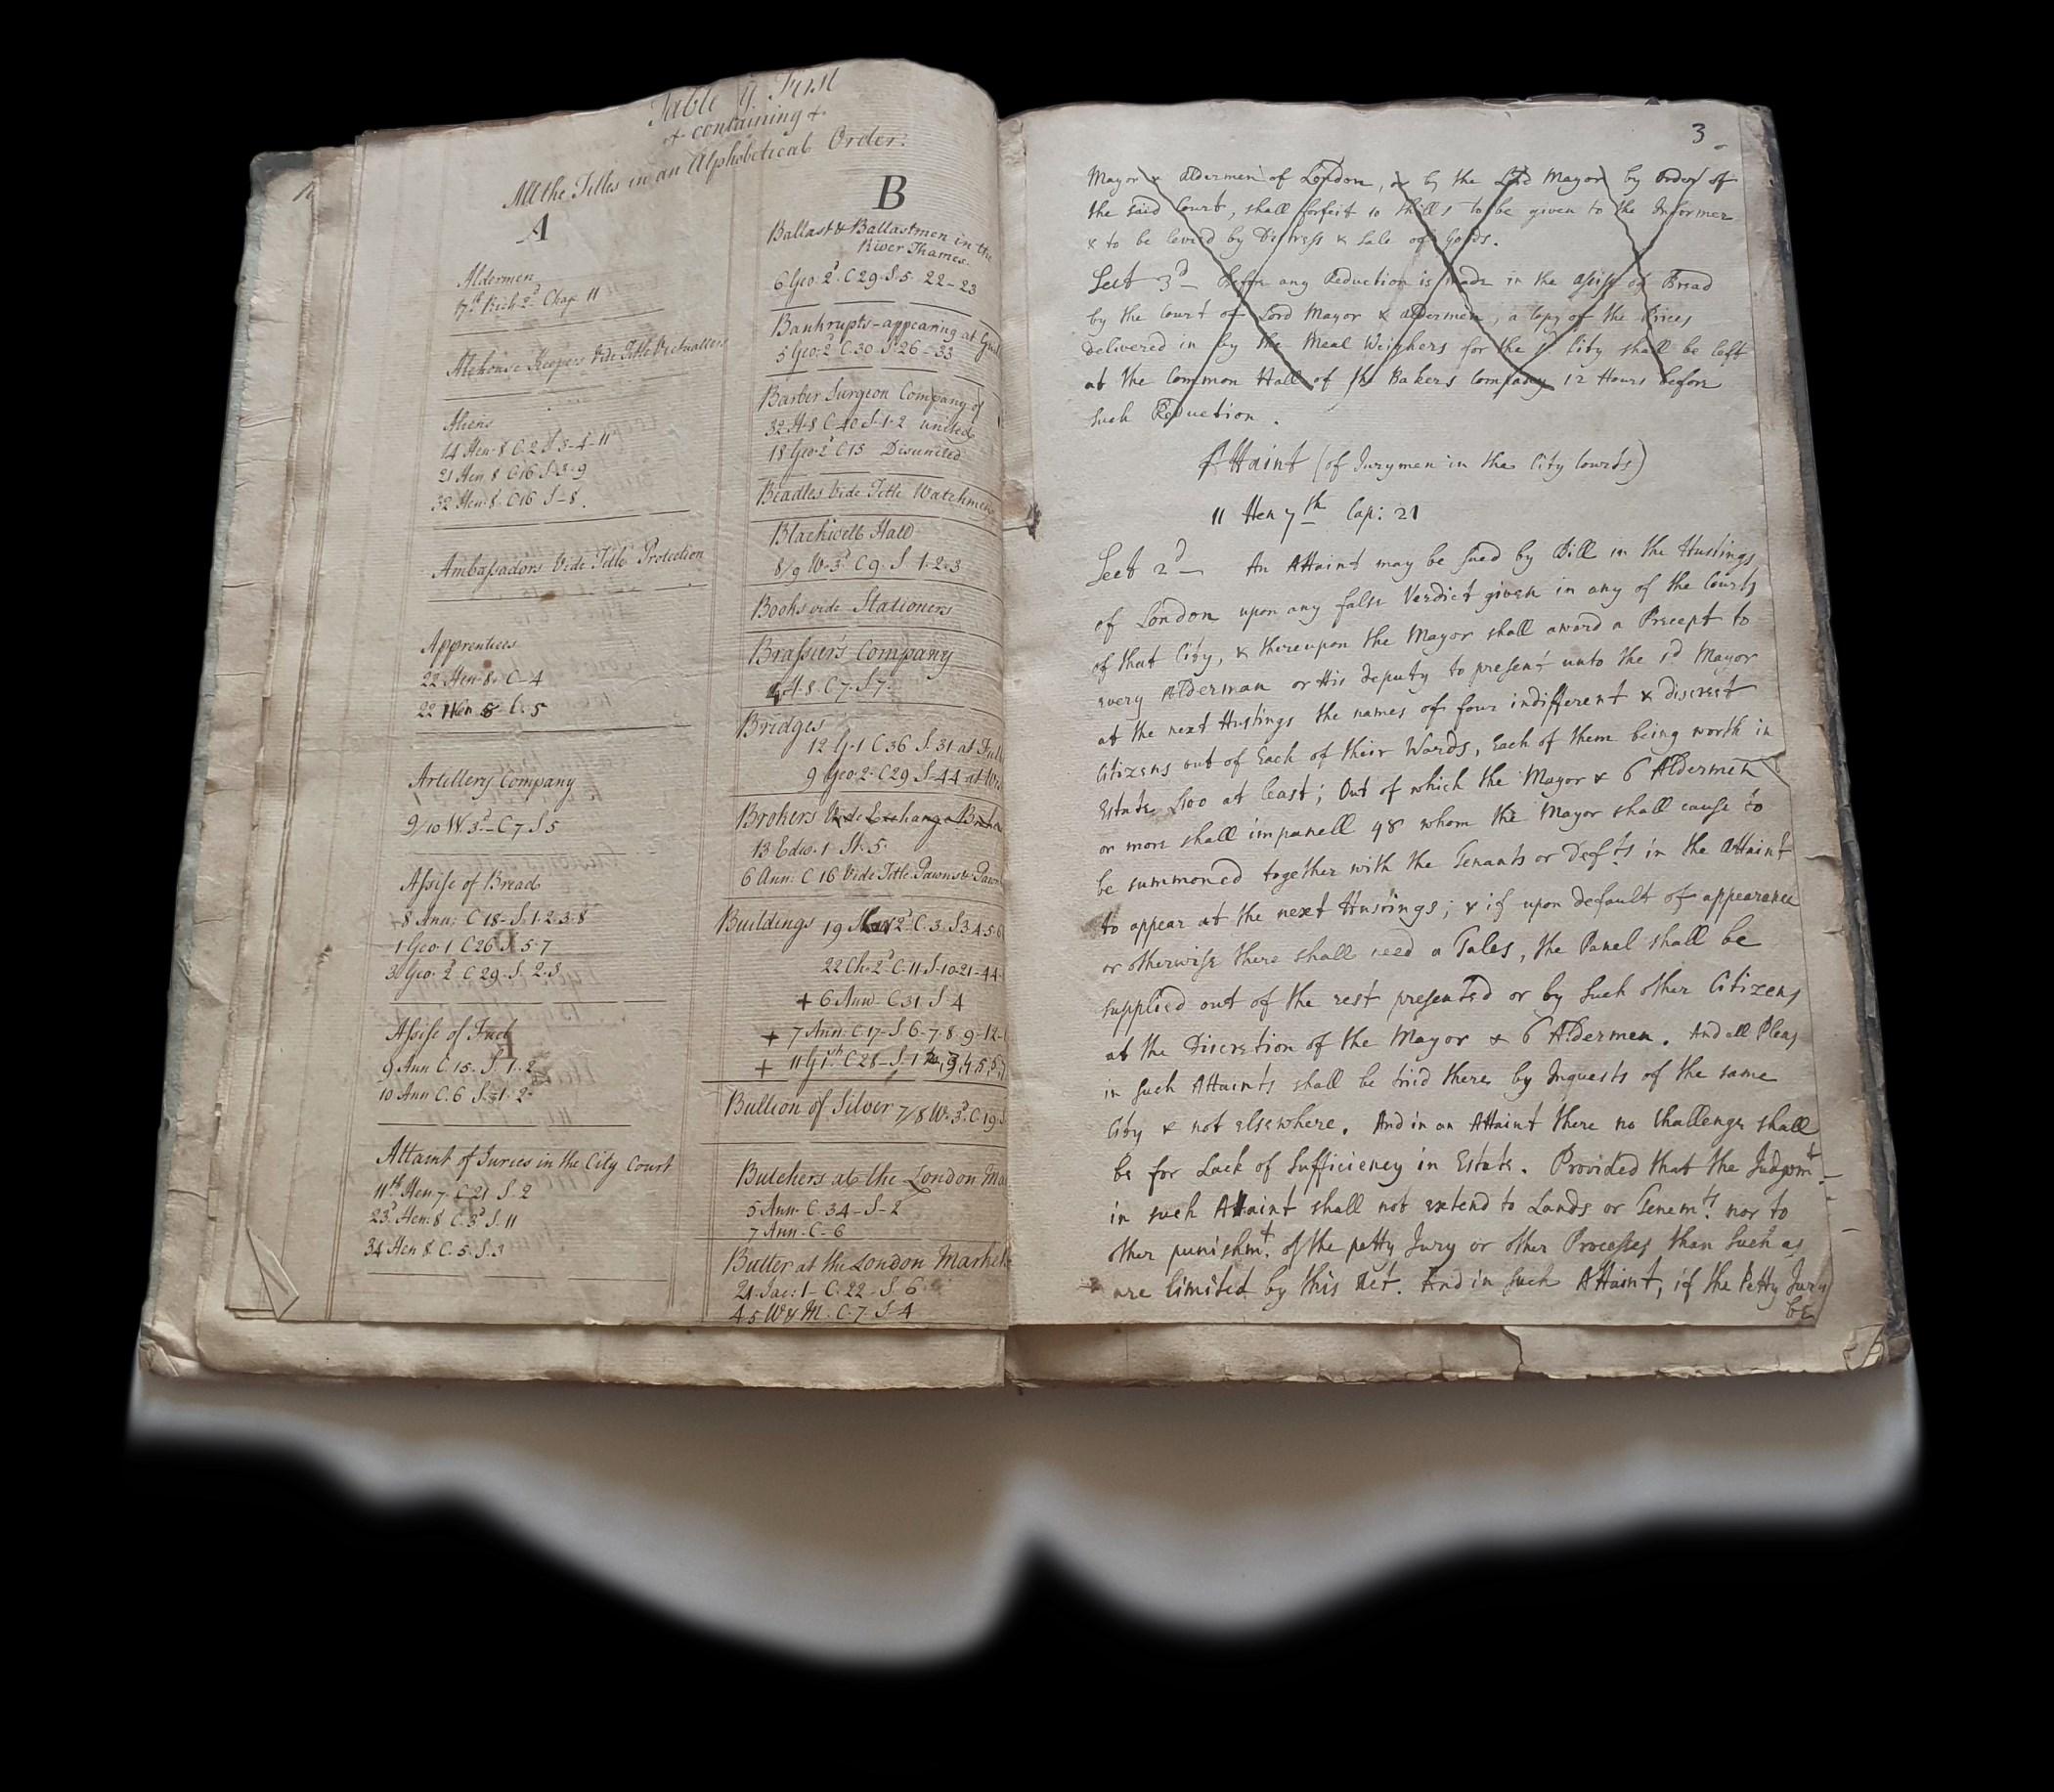 Table yͤ First
+ containing +
All the Titles in an Alphabetical Order.
A
Aldermen
17th Rich 2d Chap 11
Alehouse Keepers Vide Title Victuallers
Aliens
14 Hen 8 C 2 S 3-4-11
21 Hen 8 C16 S 3-9
32 Hen 8 C16 S-8.
Ambassadors Vide Title Protection
Apprentices
22 Hen 8 C-4
22 Hen 8 C.5
Artillery Company
9/10 W.3d-C7 S 5
Assise of Bread
8 Ann: C 18-S.1.2.3.8
1 Geo.1 C26 S.5.7
3 Geo: 2d C 29-S. 2.3
Assise of Fuel
9 Ann C.15. S.1.2
10 Ann C.6 S.1.2
Attaint of Juries in the City Court
11th Hen 7. C 21 S.2
23d Hen: 8 C.3d S.11
34 Hen 8 C.5.S.3
B
Ballast & Ballastmen in the
River Thames
6 Geo: 2d C 29. S.5. 22-23
Bankrupts-appearing at
5 Geo: 2d C.30 S.26-33
Barber Surgeon Company of
32 H-8 C 40 S.1.2 united
18 Geo: 2d C15 Disunited
Beadles Vide Title Watchmen
Blackwell Hall
8/9 W.3d C 9. S. 1.2.3
Books vide Stationers
Brasiers Company
4 H.8. C 7. S.7.
Bridges
12 G.1 C36 S.31 at
9 Geo.2. C29 S-44 at
Brokers Vide Exchange
13 Edw.1 St.5.
6 Ann: C 16 Vide Title Pawns &
Buildings 19 2d C.3.S3.4.5.6
22 Ch: 2d C.11.S-10-21-44
+ 6 Ann- C31 S 4
+ 7 Ann: C.17-S.6-7.8.9-12-
+ 11 G 1th C 28-S.1
Bullion of Silver 7/8 W.3d C.19.
Butchers at the London
5 Ann- C.34-S-2
7 Ann-C-6
Butter at the London Market
21 Jac: 1- C.22-S.6
4.5 W&M. C.7. S-4
3
Mayor & Aldermen of London, or by the Lord Mayor by order of
the said Court, shall forfeit 10 Shills to be given to the Informer
& to be levied by Distress & Sale of Goods.
Sect 3d — Before any Reduction is made in the Assise of Bread
by the Court of Lord Mayor & Aldermen, a Copy of the Prices
delivered in by the Meal Weighers for the sd City shall be left
at the Common Hall of the Bakers Company 12 Hours before
such Reduction.
Attaint (of Jurymen in the City Courts)
11 Hen 7th Cap: 21
Sect 2d — An Attaint may be sued by Bill in the Hustings
of London upon any false Verdict given in any of the Courts
of that City, & thereupon the Mayor shall award a Precept to
every Alderman or His Deputy to present unto the sd Mayor
at the next Hustings the names of four indifferent & discreet
Citizens out of Each of their Wards, Each of them being worth in
Estate £100 at least; Out of which the Mayor & 6 Aldermen
or more shall impanell 48 whom the Mayor shall cause to
be summoned together with the Tenants or Defts in the Attaint
to appear at the next Hustings; & if upon default of appearance
or otherwise there shall need a Tales, the Panel shall be
supplied out of the rest presented or by such other Citizens
at the Discretion of the Mayor & 6 Aldermen. And all Pleas
in such Attaints shall be tried there by Inquests of the same
City & not elsewhere. And in an Attaint there no Challenge shall
be for Lack of Sufficiency in Estate. Provided that the Judgmt
in such Attaint shall not extend to Lands or Tenemts nor to
other punishmt of the petty Jury or other Processes than such as
are limited by this Act. And in such Attaint, if the Petty Jury
be